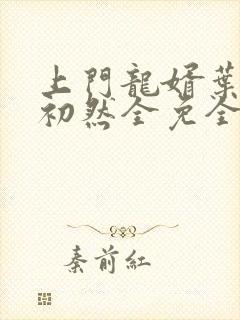 上門龍婿葉
初然全免全
秦前紅